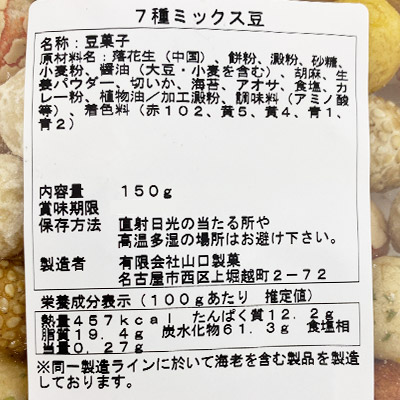 ７種ミックス豆
名称：豆菓子
原材料名：落花生（中国）、餅粉、澱粉、砂糖、
小麦粉、醤油（大豆・小麦を含む）、胡麻、生
姜パウダー、切いか、海苔、アオサ、食塩、カ
レー粉、植物油／加工澱粉、調味料（アミノ酸
等）、着色料（赤１０２、黄５、黄４、青１、
青２）
内容量　１５０ｇ
賞味期限
保存方法　直射日光の当たる所や
高温多湿の場所はお避け下さい。
製造者　有限会社山口製菓
名古屋市西区上堀越町２－７２
栄養成分表示（１００ｇあたり　推定値）
熱量４５７ｋｃａｌ　たんぱく質１２．２ｇ
脂質１９．４ｇ　炭水化物６１．３ｇ　食塩相
当量０．２７ｇ
※同一製造ラインに於いて海老を含む製品を製造
しております。